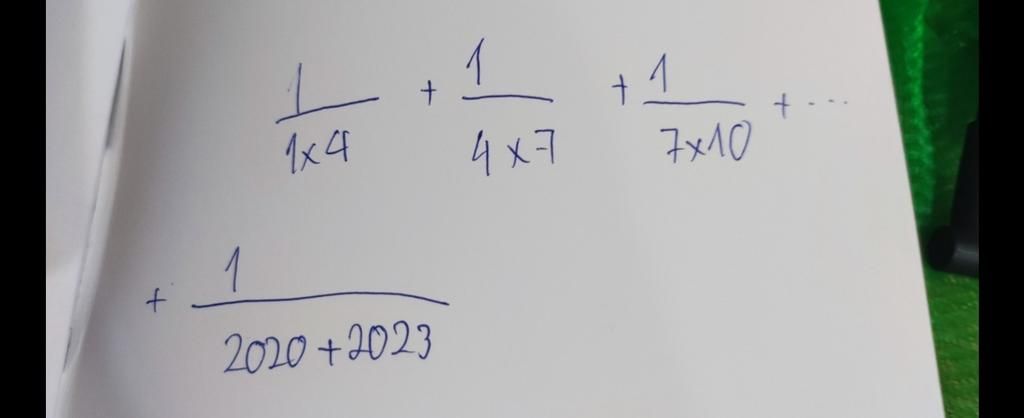 1/1×4 + 1/4×7 + 1/7×10 + ...
+ 1/2020+2023